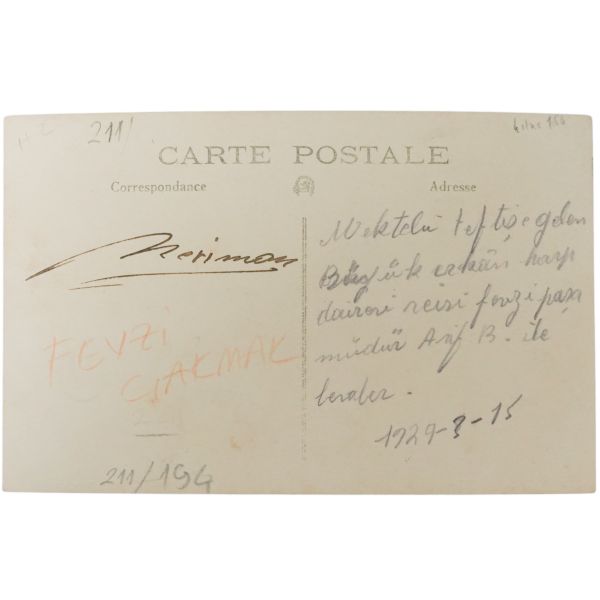 211/
CARTE POSTALE
Correspondance
Adresse
Neriman
FEVZİ
ÇAKMAK
211/194
Mektebi teftişe gelen
Büyük erkânı harp
dairesi reisi fevzi paşa
müdür Asıf B. ile
beraber.
1929-3-15